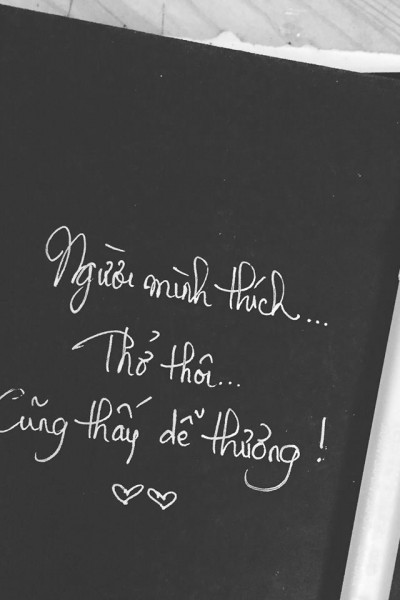 Người mình thích...
Thở thôi...
Cũng thấy dễ thưởng !
♡♡